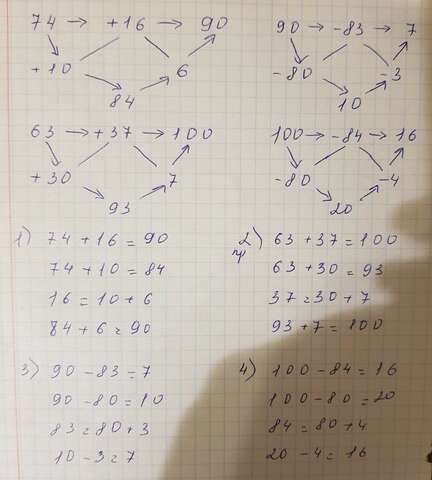 74 → +16 → 90
+10 6
84
90 → -83 → 7
-80 -3
10
63 → +37 → 100
+30 7
93
100 → -84 → 16
-80 -4
20
1) 74 + 16 = 90
74 + 10 = 84
16 = 10 + 6
84 + 6 = 90
2) 63 + 37 = 100
63 + 30 = 93
37 = 30 + 7
93 + 7 = 100
3) 90 - 83 = 7
90 - 80 = 10
83 = 80 + 3
10 - 3 = 7
4) 100 - 84 = 16
100 - 80 = 20
84 = 80 + 4
20 - 4 = 16